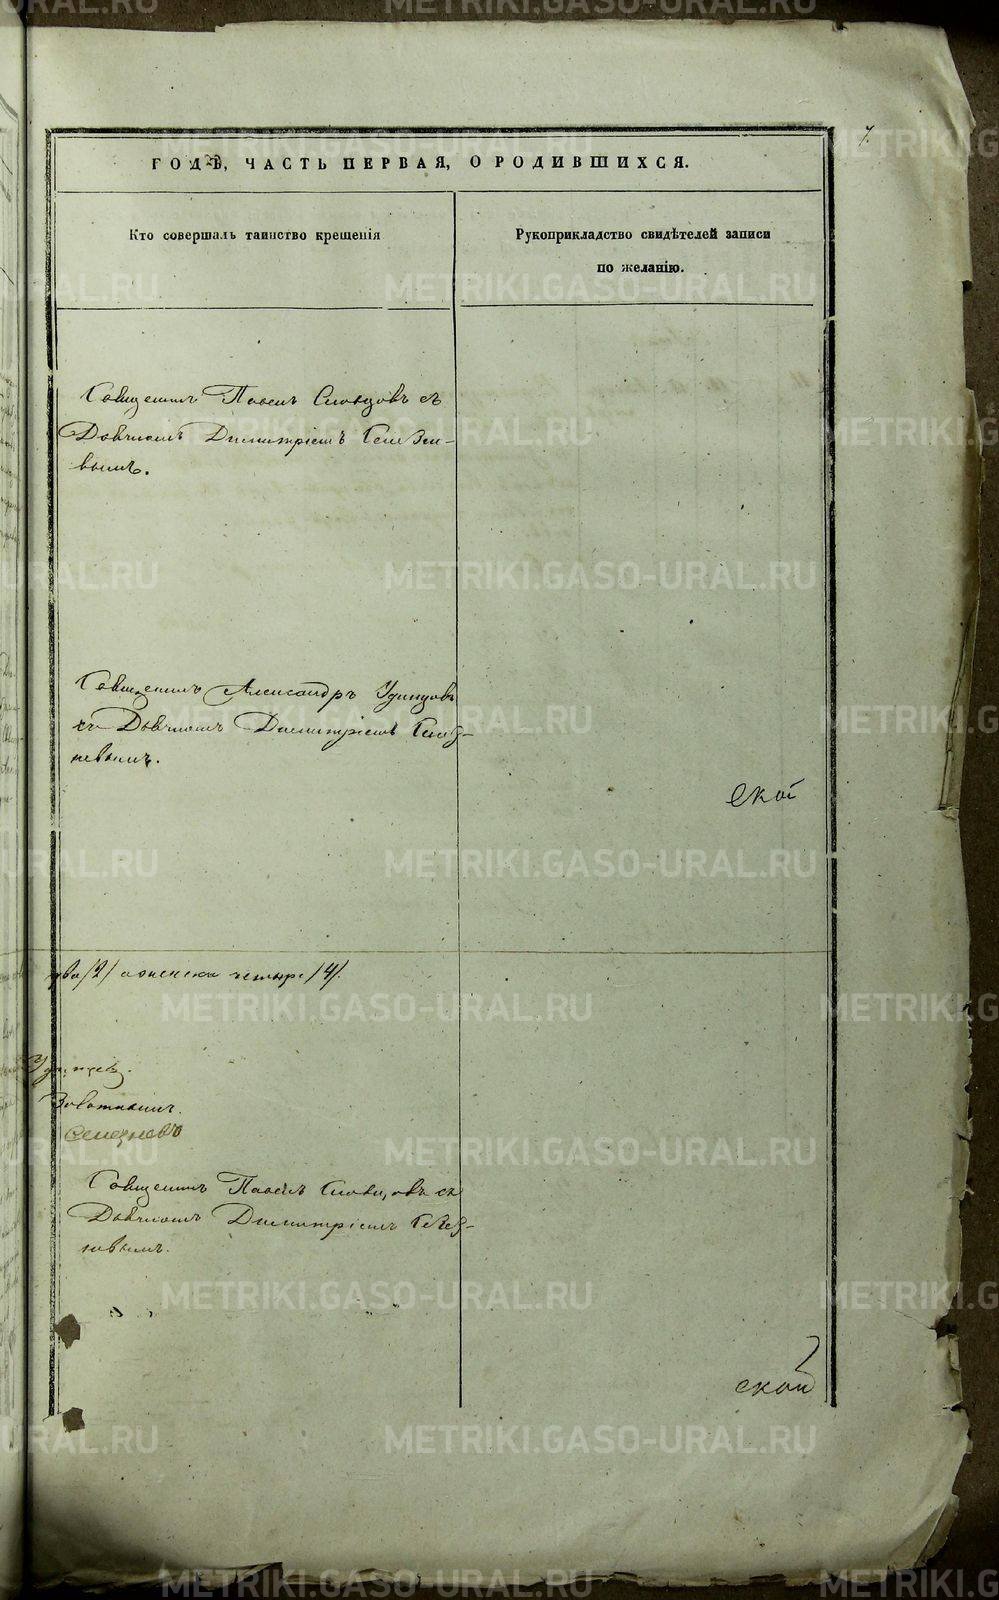 7.
ГОДѢ, ЧАСТЬ ПЕРВАЯ, О РОДИВШИХСЯ.
Кто совершалъ таинство крещенія
Рукоприкладство свидѣтелей записи
по желанію.
Священникъ Павелъ Словцовъ съ
Дьячкомъ Димитріемъ Селезне-
вымъ.
Священникъ Александръ Удинцовъ
съ Дьячкомъ Димитріемъ Селез-
невымъ.
ской
два /2/ женска четыре /4/.
Удинцев.
Селезневъ
Священникъ Павелъ Словцовъ съ
Дьячкомъ Димитріемъ Селез-
невымъ.
ской
METRIKI.GASO-URAL.RU